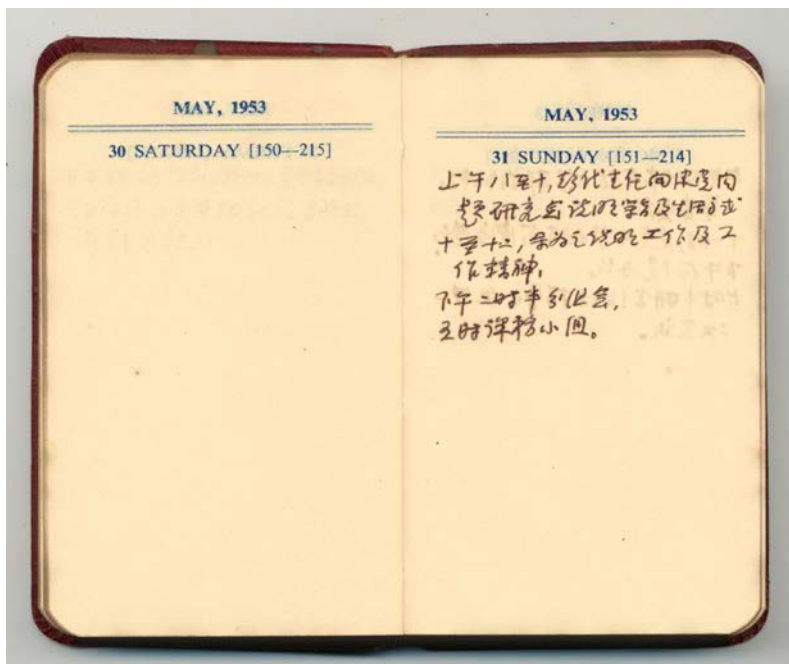 MAY, 1953
30 SATURDAY [150—215]
MAY, 1953
31 SUNDAY [151—214]
上午八至十,彭代主任向
题研究会说明学习及
十至十二,余为之说明工作及工
作精神,
下午二时半分组会,
五时课程小组。